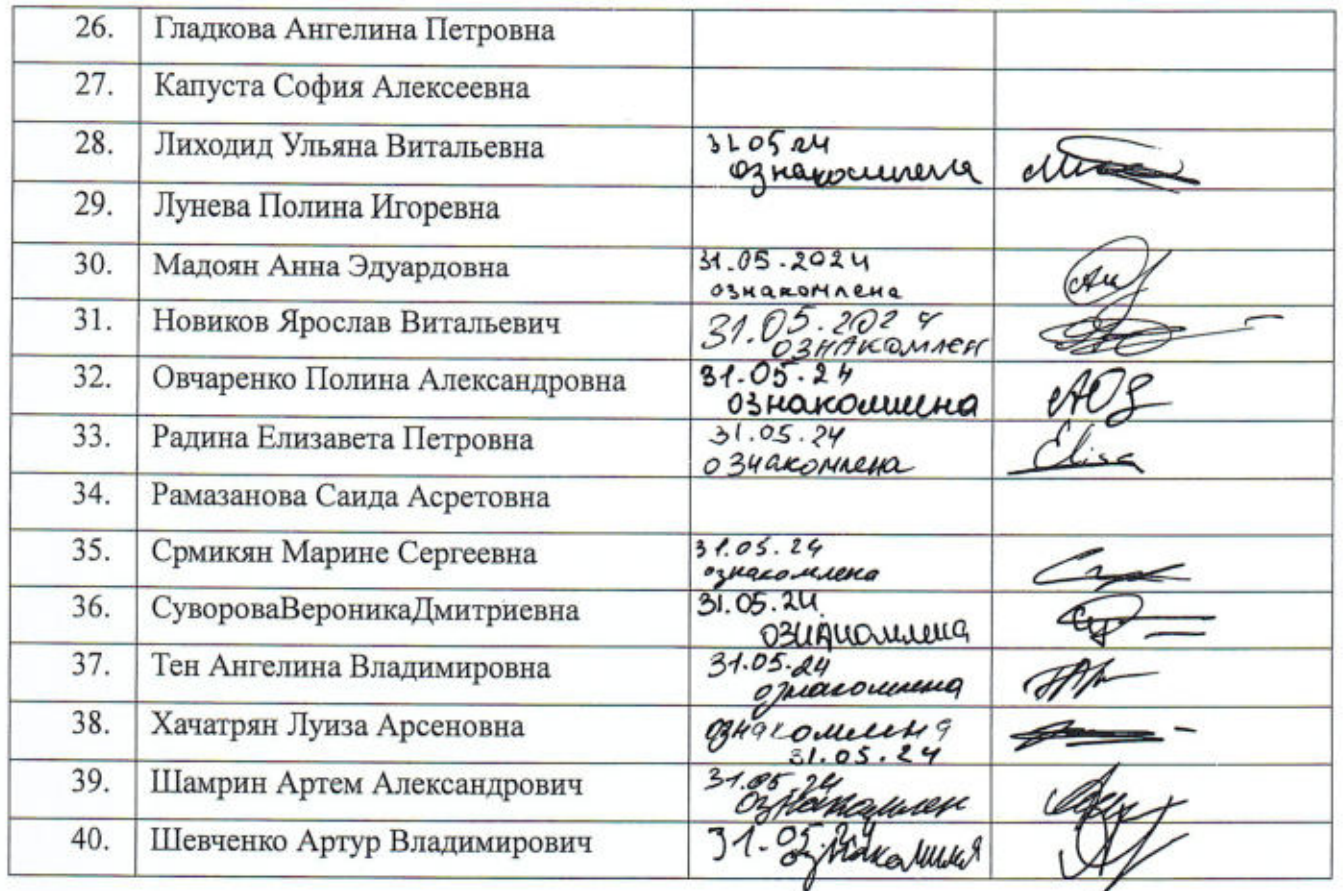 26. Гладкова Ангелина Петровна
27. Капуста София Алексеевна
28. Лиходид Ульяна Витальевна 31 05 24
ознакомлена
29. Лунева Полина Игоревна
30. Мадоян Анна Эдуардовна 31.05.2024
ознакомлена
31. Новиков Ярослав Витальевич 31.05.2024
ознакомлен
32. Овчаренко Полина Александровна 31.05.24
ознакомлена
33. Радина Елизавета Петровна 31.05.24
ознакомлена Elisa
34. Рамазанова Саида Асретовна
35. Срмикян Марине Сергеевна 31.05.24
ознакомлена
36. СувороваВероникаДмитриевна 31.05.24
ознакомлена
37. Тен Ангелина Владимировна 31.05.24
ознакомлена
38. Хачатрян Луиза Арсеновна ознакомлена
31.05.24
39. Шамрин Артем Александрович 31.05.24
ознакомлен
40. Шевченко Артур Владимирович 31.05.24